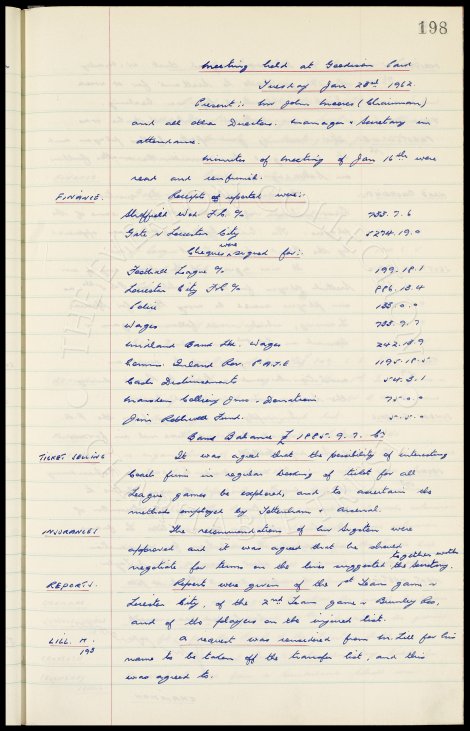 198
Meeting held at Goodison Park
Tuesday Jan 23rd 1962
Present:- Mr John Moores (Chairman)
and all other Directors. Manager & Secretary in
attendance.
Minutes of Meeting of Jan 16th were
read and confirmed.
FINANCE. Receipts reported were:-
Sheffield Wed F.C. % 733. 7. 6
Gate v Leicester City 5274. 19. 0
Cheques were signed for:-
Football League % 199. 18. 1
Leicester City F.C. % 886. 13. 4
Police 135. 0. 0
Wages 733. 9. 7
Midland Bank Wages 242. 18 9
Comms. Inland Rev. P.A.Y.E 1195. 18. 5
Cash Disbursements 54. 3. 1
Marsden Colliery Juns. Donation 75. 0. 0
Jim Rothwell Fund. 5. 5. 0
Bank Balance £ 1885. 9. 7. Cr
TICKET SELLING It was agreed that the possibility of interesting
Coach firms in regular booking of tickets for all
League games be explored, and to ascertain the
methods employed by Tottenham & Arsenal.
INSURANCES The recommendations of Mr were
approved and it was agreed that he should together with
negotiate for terms on the lines suggested the Secretary.
REPORTS. Reports were given of the 1st Team game v
Leicester City, of the 2nd Team game v Burnley Res,
and of the players on the injured list.
LILL. M. A request was received from Mr Lill for his
193 name to be taken off the transfer list, and this
was agreed to.